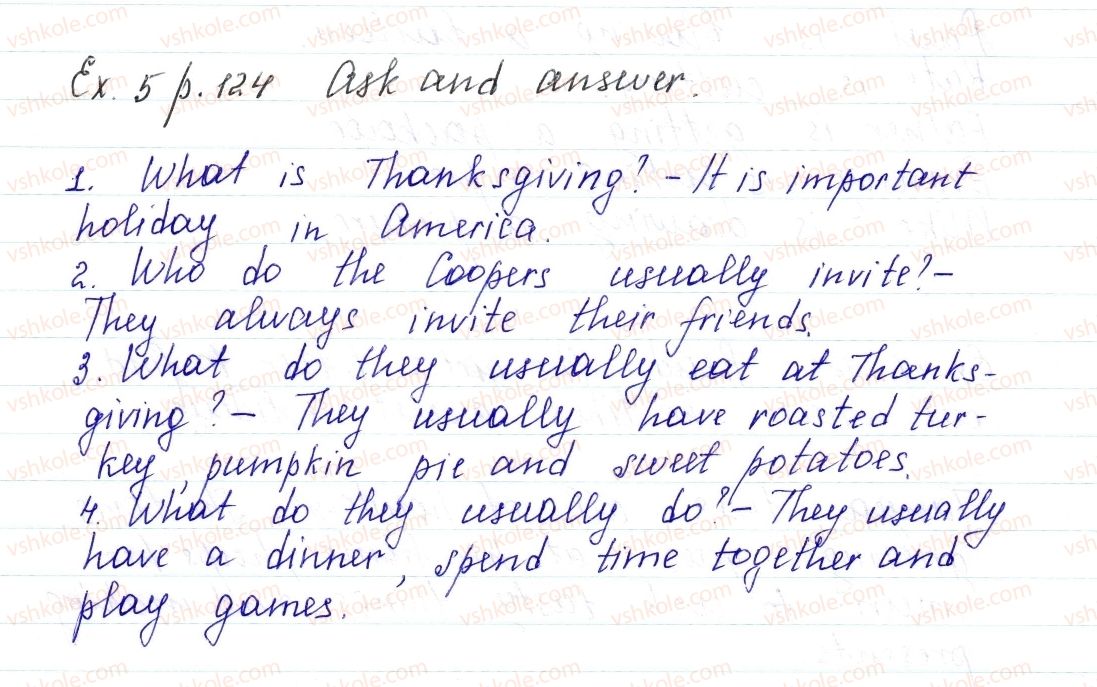 Ex. 5 p. 124 Ask and answer.
1. What is Thanksgiving? - It is important
holiday in America.
2. Who do the Coopers usually invite? -
They always invite their friends.
3. What do they usually eat at Thanks-
giving? - They usually have roasted tur-
key, pumpkin pie and sweet potatoes.
4. What do they usually do? - They usually
have a dinner, spend time together and
play games.